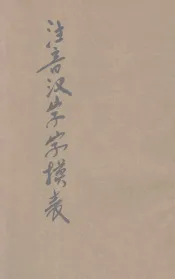 注音汉字字模表